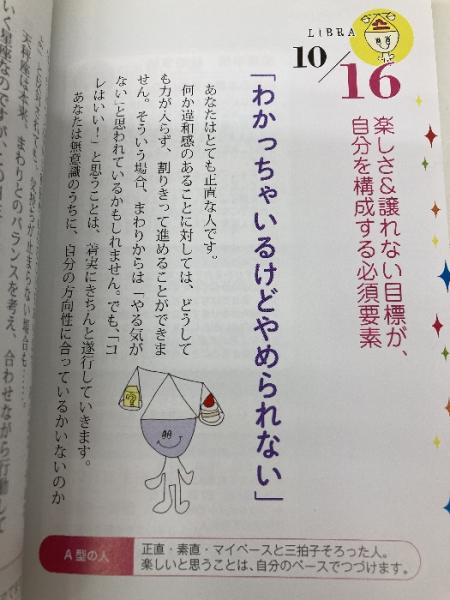 LIBRA
10/16
楽しさ&譲れない目標が、
自分を構成する必須要素
「わかっちゃいるけどやめられない」
あなたはとても正直な人です。
何か違和感のあることに対しては、どうして
も力が入らず、割りきって進めることができま
せん。そういう場合、まわりからは「やる気が
ない」と思われているかもしれません。でも、「コ
レはいい！」と思うことは、着実にきちんと遂行していきます。
あなたは無意識のうちに、自分の方向性に合っているかいないのか
天秤座は本来、まわりとのバランスを考え、合わせながら行動して
いく星座なのですが、この
A型の人
正直・素直・マイペースと三拍子そろった人。
楽しいと思うことは、自分のペースでつづけます。